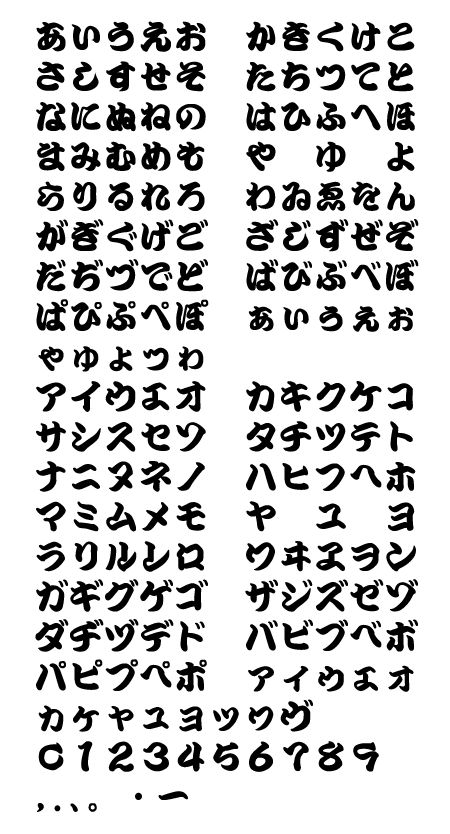 あいうえお かきくけこ
さしすせそ たちつてと
なにぬねの はひふへほ
まみむめも や ゆ よ
らりるれろ わゐゑをん
がぎぐげご ざじずぜぞ
だぢづでど ばびぶべぼ
ぱぴぷぺぽ ぁぃぅぇぉ
ゃゅょっゎ
アイウエオ カキクケコ
サシスセソ タチツテト
ナニヌネノ ハヒフヘホ
マミムメモ ヤ ユ ヨ
ラリルレロ ワヰヱヲン
ガギグゲゴ ザジズゼゾ
ダヂヅデド バビブベボ
パピプペポ ァィゥェォ
ヵヶャュョッヮヴ
0123456789
,.、。・ー